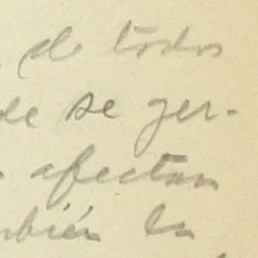 de todos
de se ger-
afectan
mbién la